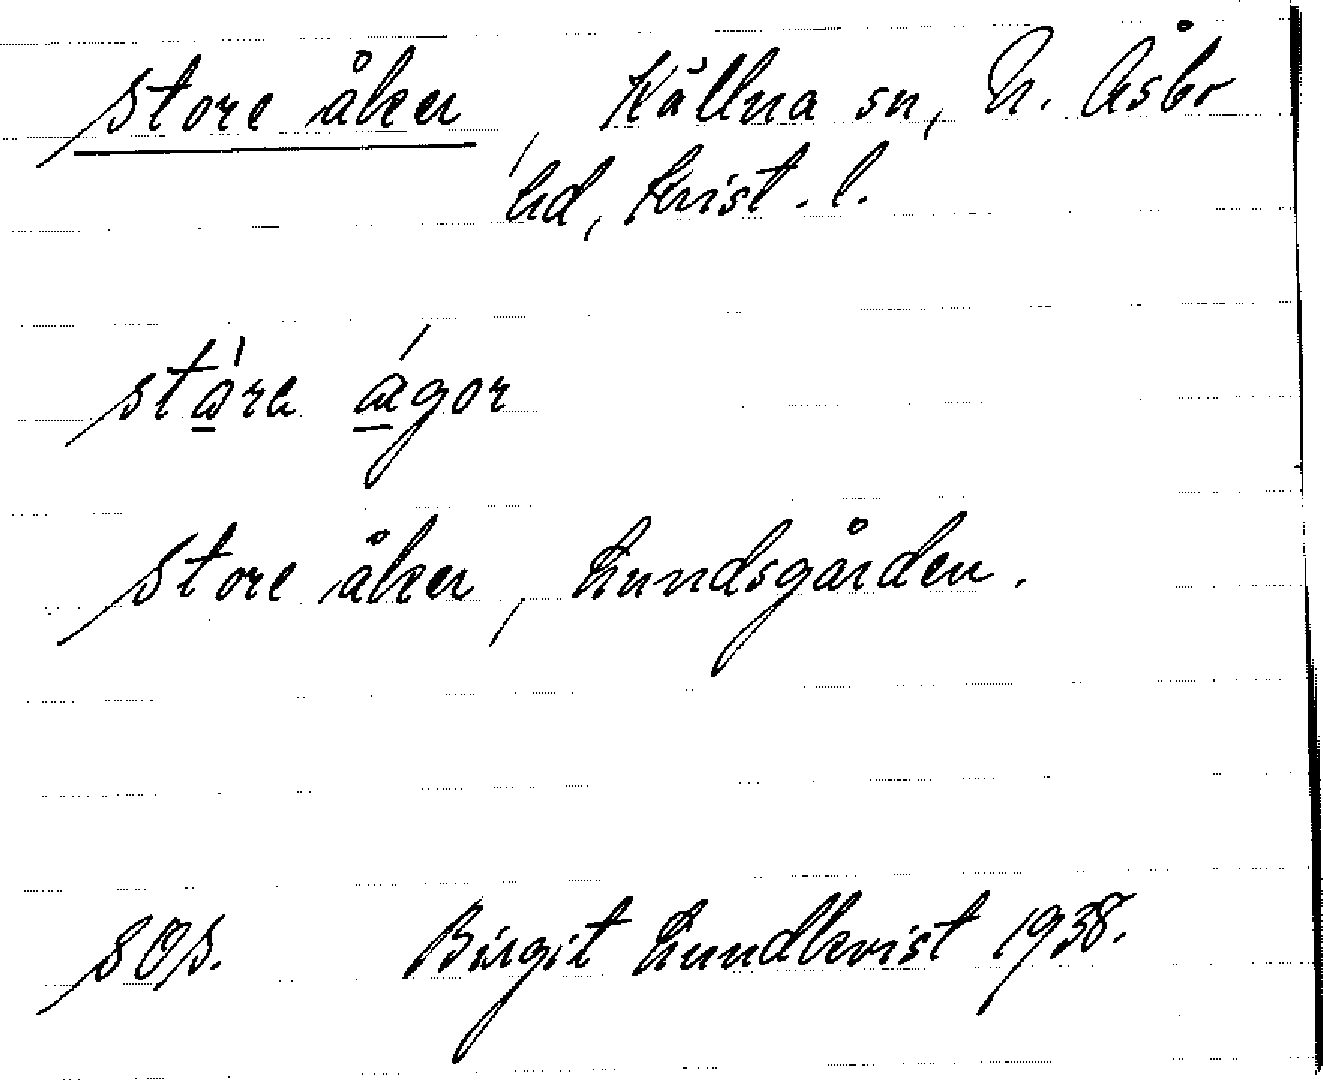 Store åker, Källna sn, N. Åsbo
hd, Krist. l.
ståra ǽgor
Store åker, Lundsgården.
Birgit Lundkvist 1938.